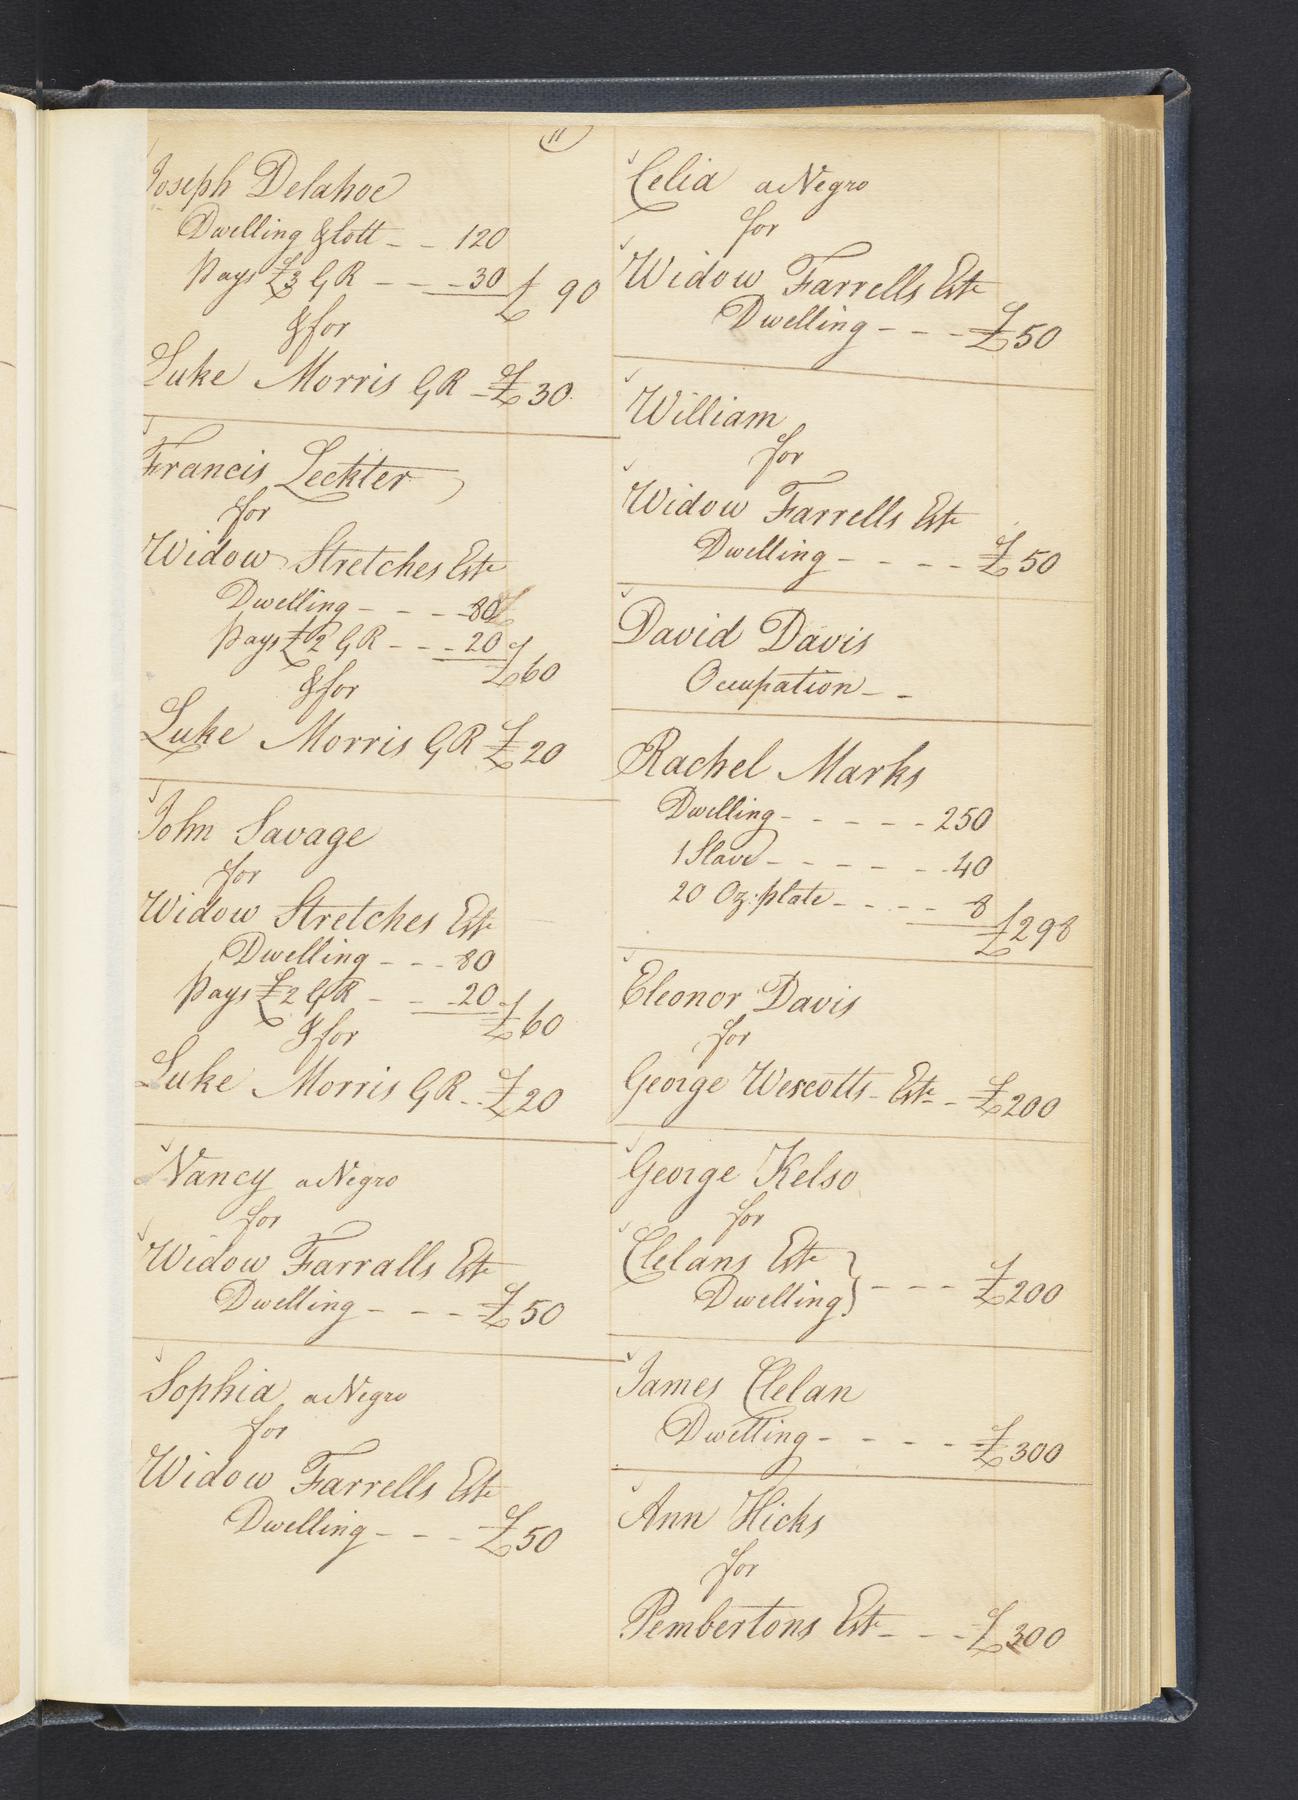 11
Joseph Delahoe
Dwelling & lott - - 120
Pays £3 GR - - - 30 £ 90
& for
Luke Morris GR - £30
Francis Leckter
for
Widow Stretches Este
Dwelling - - - 80
Pays £2 GR - - - 20 £60
& for
Luke Morris GR £20
John Savage
for
Widow Stretches Este
Dwelling - - - 80
Pays £2 GR - - 20 £60
& for
Luke Morris GR - - £20
Nancy a Negro
for
Widow Farralls Este
Dwelling - - - - £50
Sophia a Negro
for
Widow Farrells Este
Dwelling - - - £50
Celia a Negro
for
Widow Farrells Este
Dwelling - - - £50
William
for
Widow Farrells Este
Dwelling - - - - £50
David Davis
Occupation - -
Rachel Marks
Dwelling - - - - - 250
1 Slave - - - - - 40
20 Oz: plate - - - - 8 £298
Eleonor Davis
for
George Wescotts - Este - £200
George Kelso
for
Clelans Este
Dwelling } - - - £200
James Clelan
Dwelling - - - - £300
Ann Hicks
for
Pembertons Este - - - £300